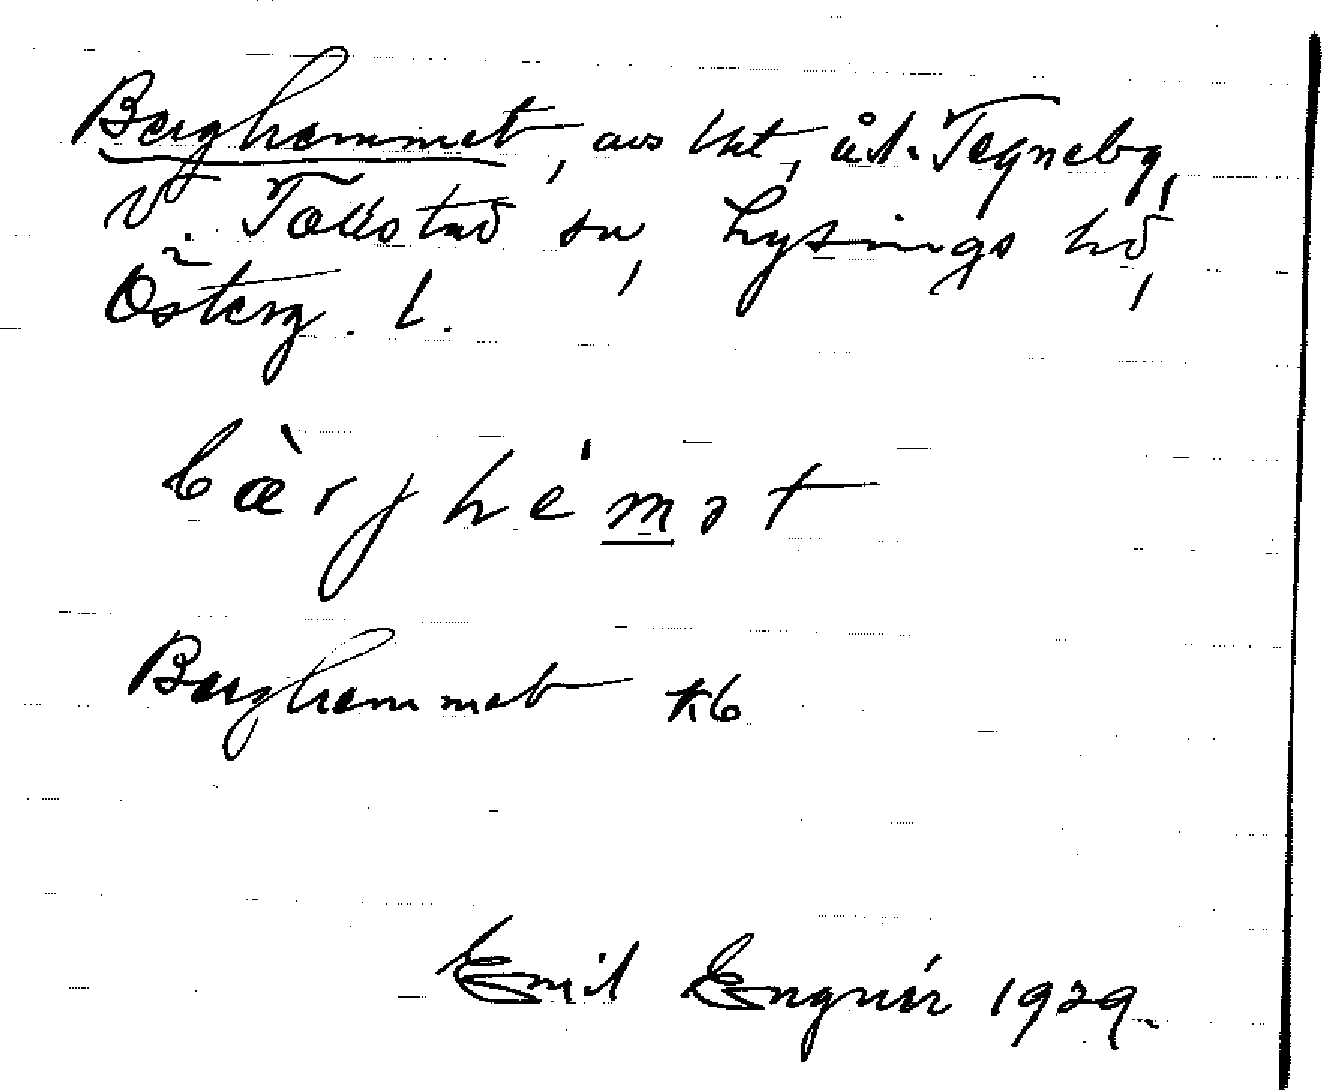 Berghemmet, avs lht, åt. Tegneby,
V. Tollstad sn, Lysings hd,
Österg. l.
bæ̀rj hémət
Berghemmet kb
Emil Engnér 1929.